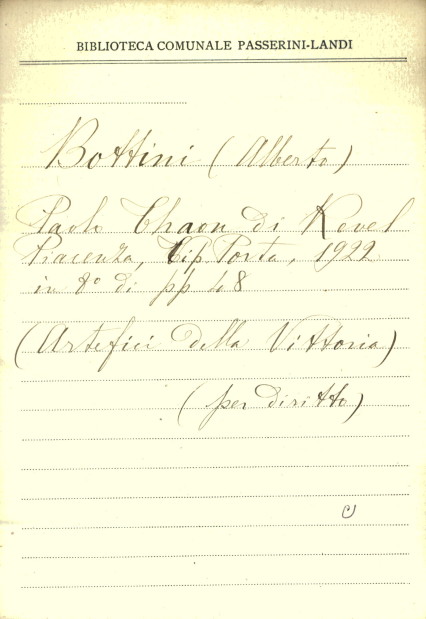 BIBLIOTECA COMUNALE PASSERINI-LANDI
Bottini (Alberto)
Paolo Thaon di Revel
Piacenza, Tip Porta, 1922
in 8º di pp 48
(Artefici della Vittoria)
(per diritto)